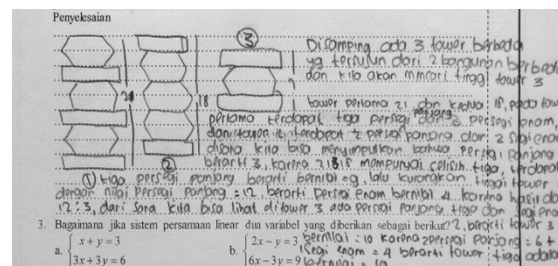 Penyelesaian
3
Disamping ada 3 tower berbeda
yg tersusun dari 2 bangunan berbeda
dan kita akan mencari tinggi tower 3
21
18
tower pertama 21 dan kedua 18, pada tower
pertama terdapat tiga persegi panjang dan 3 persegi enam,
terdapat 2 persegi panjang dan 2 segi enam
disana kita bisa menyimpulkan bahwa persegi panjang
2
berarti 3, karena 21 & 18 mempunyai selisih tiga,
1 tiga persegi panjang berarti bernilai 9, lalu kurangkan tinggi tower
dengan nilai persegi panjang = 12, berarti persegi enam bernilai 4 karena hasil da
12 : 3, dari sana kita bisa lihat di tower 3 ada persegi panjang tiga dan segi enam
3. Bagaimana jika sistem persamaan linear dua variabel yang diberikan sebagai berikut? 2, berarti tower 3
a. x + y = 3
3x + 3y = 6
b. 2x − y = 3
6x − 3y = 9
bernilai = 10 karena 2 persegi panjang = 6 +
segi enam = 4 berarti tower tiga adalah
bernilai = 10